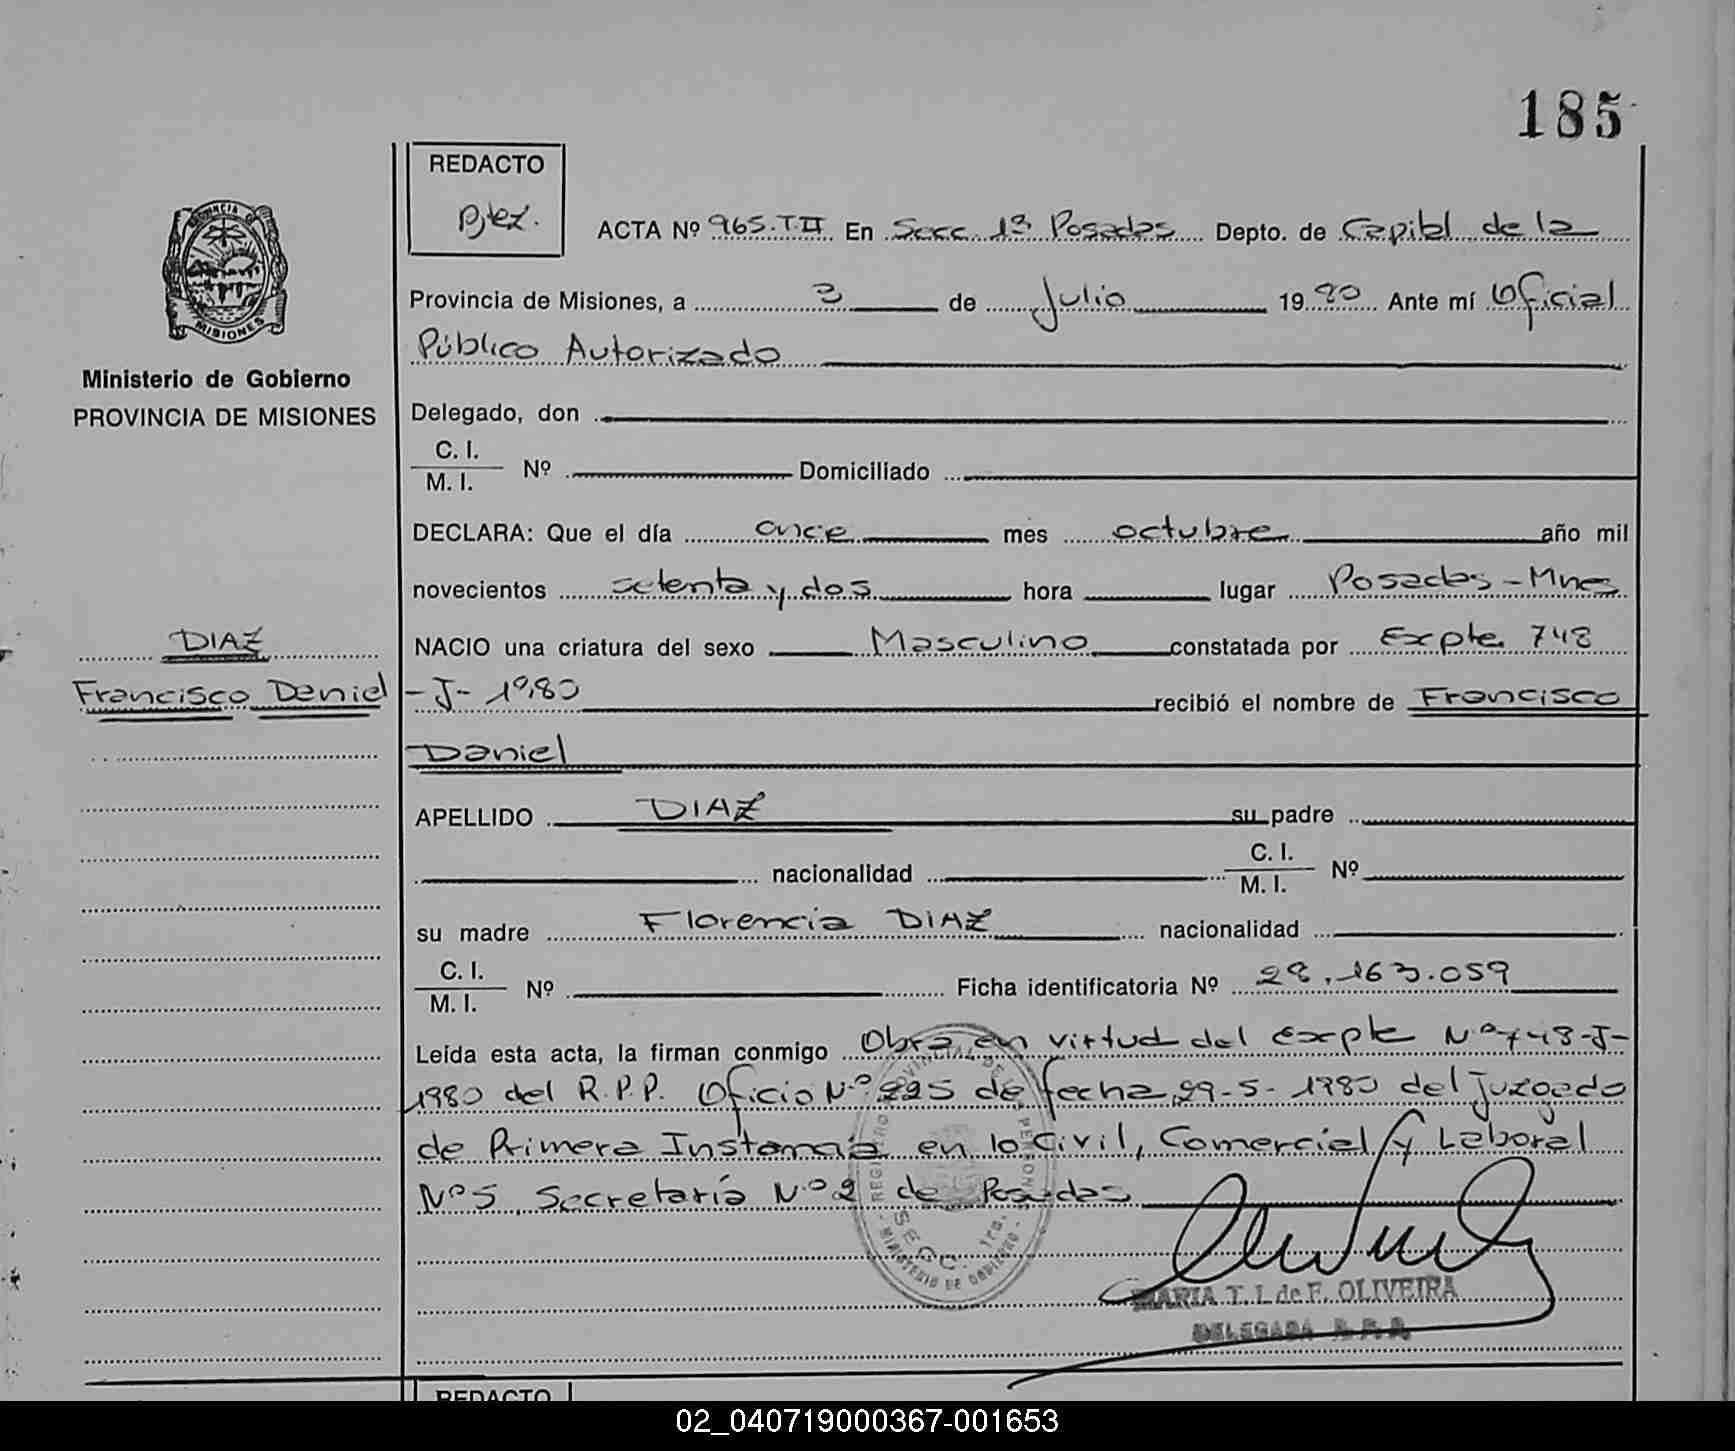 185
REDACTO
ACTA Nº 965.T.II En Secc. 1ª Posadas Depto. de Capital de la
PROVINCIA DE MISIONES
Provincia de Misiones, a 3 de Julio 1980 Ante mí Oficial
Público Autorizado
Ministerio de Gobierno
PROVINCIA DE MISIONES
Delegado, don
C. I.
M. I. Nº Domiciliado
DECLARA: Que el día once mes octubre año mil
novecientos setenta y dos hora lugar Posadas - Mnes
DIAZ
NACIO una criatura del sexo Masculino constatada por Expte. 748
Francisco Daniel
- J - 1980 recibió el nombre de Francisco
Daniel
APELLIDO DIAZ su padre
nacionalidad C. I.
M. I. Nº
su madre Florencia DIAZ nacionalidad
C. I.
M. I. Nº Ficha identificatoria Nº 28.163.059
Leída esta acta, la firman conmigo Obra en virtud del Expte Nº 748-J-
1980 del R.P.P. Oficio Nº 225 de fecha 29-5-1980 del Juzgado
de Primera Instancia en lo Civil, Comercial y Laboral
Nº 5, Secretaría Nº 2 de Posadas
REGISTRO PROVINCIAL DE LAS PERSONAS
SECC. 1ra.
- MINISTERIO DE GOBIERNO -
MARIA T. I. de F. OLIVEIRA
DELEGADA R. P. P.
REDACTO
02_040719000367-001653